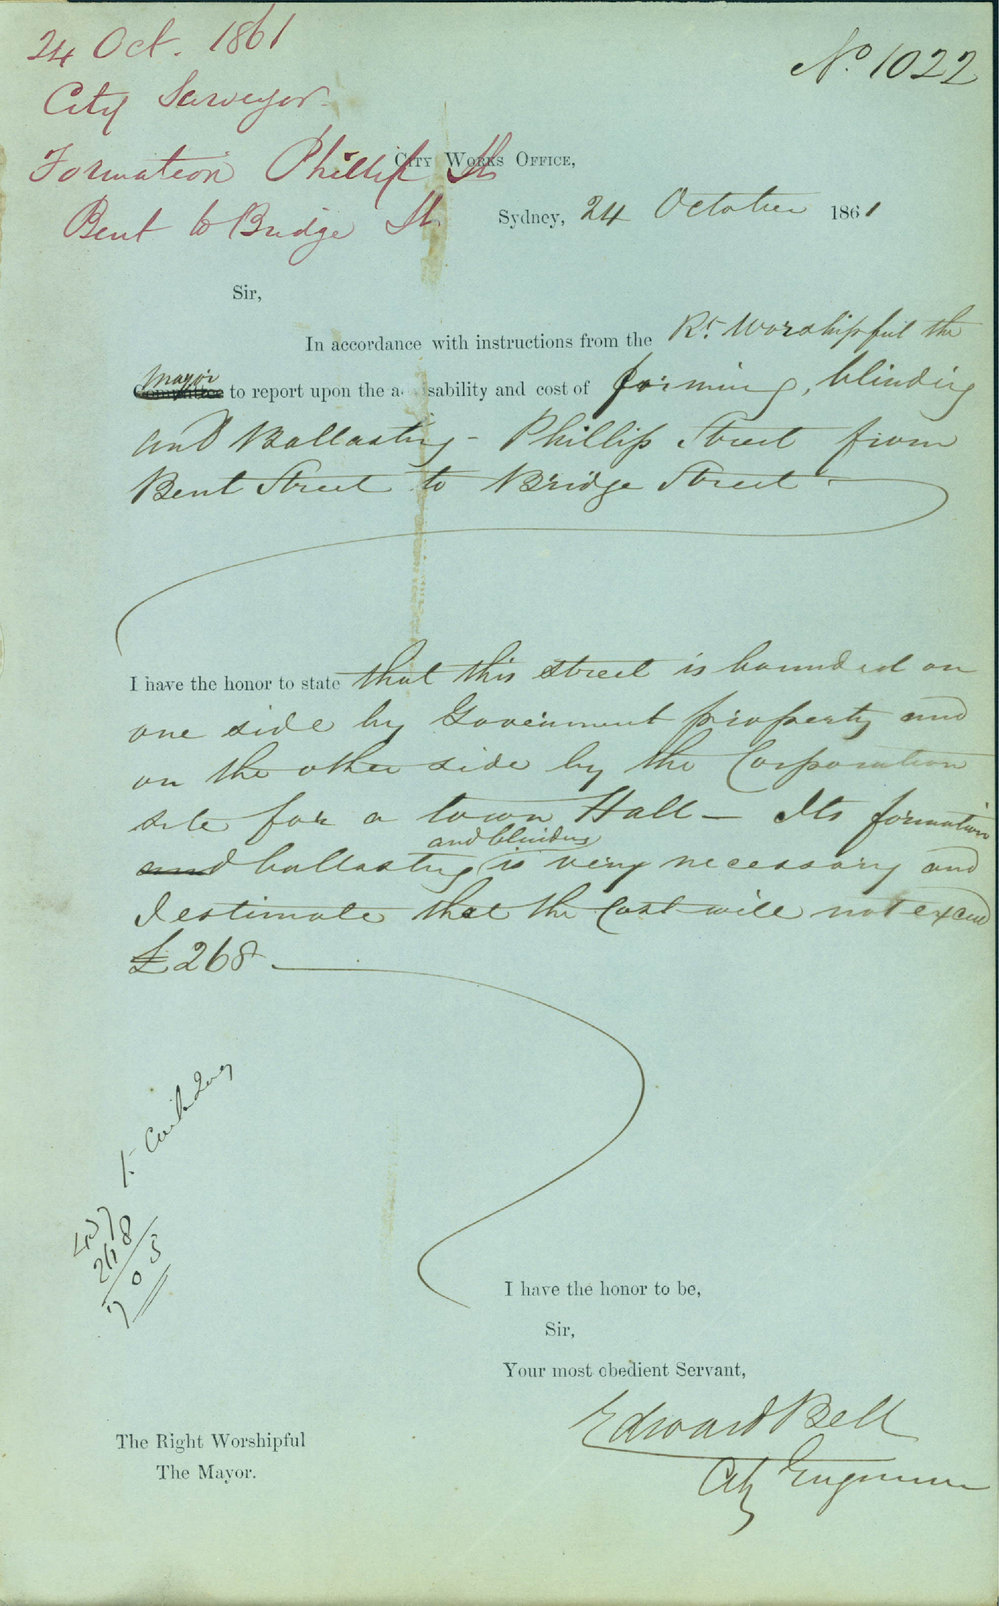 24 Oct. 1861
City Surveyor
Formation Phillip St
Bent to Bridge St.
No. 1022
City Works Office,
Sydney, 24 October 1861
Sir,
In accordance with instructions from the Rt. Worshipful the
Mayor
Committee to report upon the advisability and cost of forming, blinding
and Ballasting - Phillip Street from
Bent Street to Bridge Street
I have the honor to state that this street is bounded on
one side by Government property and
on the other side by the Corporation
site for a town Hall — Its formation
and blinding
and ballasting is very necessary and
I estimate that the Cost will not exceed
£268
268
705
I have the honor to be,
Sir,
Your most obedient Servant,
Edward Bell
City Engineer
The Right Worshipful
The Mayor.